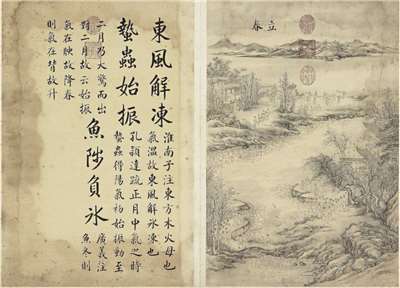 立春
東風解凍
淮南子注東方木火母也
氣溫故東風解冰凍也
蟄蟲始振
孔穎達疏正月中氣之時
蟄蟲得陽氣初始振動至
二月乃大驚而出
對二月故云始振
魚陟負冰
廣義注
魚冬則
氣在腴故降春
則氣在背故升